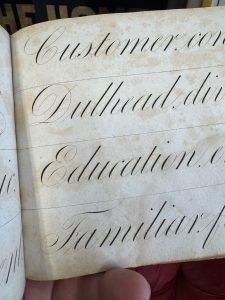 Customer, con
Dulhead, div
Education, e
Familiar, f